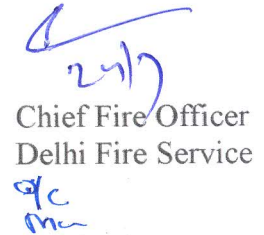 24/7
Chief Fire Officer
Delhi Fire Service
o/c